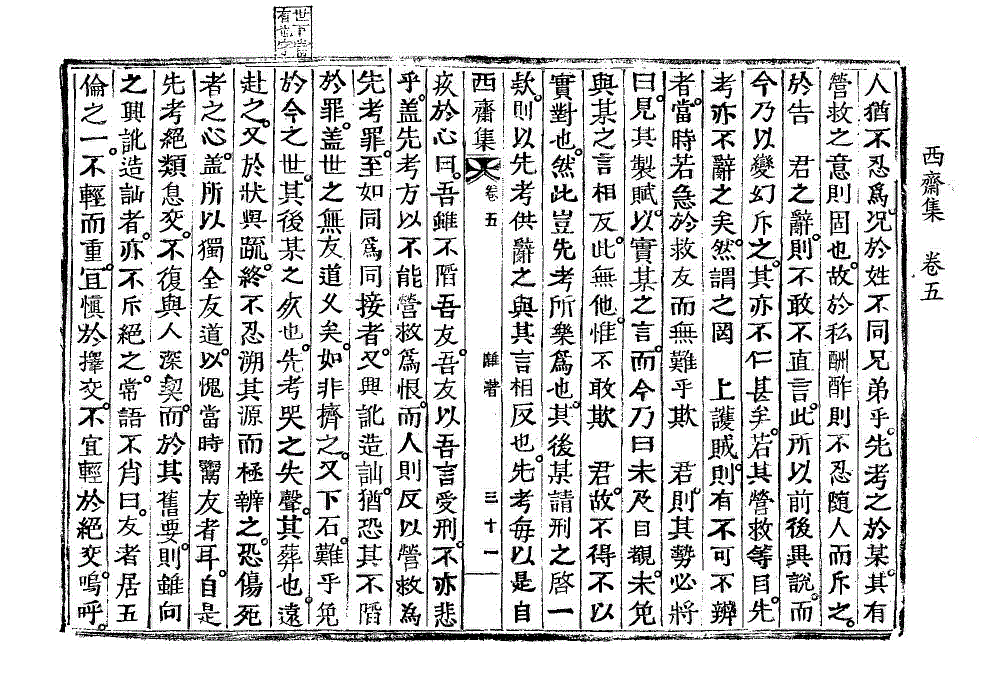 西齋集 卷五
人猶不忍爲。况於姓不同兄弟乎。先考之於某。其有
營救之意則固也。故於私酬酢則不忍随人而斥之。
於告 君之辭。則不敢不直言。此所以前後異說。而
今乃以變幻斥之。其亦不仁甚矣。若其營救等目。先
考亦不辭之矣。然謂之罔 上護賊。則有不可不辨
者。當時若急於救友而無難乎欺 君。則其勢必將
曰見其製賦。以實某之言。而今乃曰未及目覩。未免
與某之言相反。此無他。惟不敢欺 君。故不得不以
實對也。然此豈先考所樂爲也。其後某請刑之啓一
款。則以先考供辭之與其言相反也。先考每以是自
西齋集 卷五 雜著 三十一
疚於心曰。吾雖不陷吾友。吾友以吾言受刑。不亦悲
乎。盖先考方以不能營救爲恨。而人則反以營救為
先考罪。至如同爲同接者。又興訛造訕。猶恐其不陷
於罪。盖世之無友道乂矣。如非擠之。又下石。難乎免
於今之世。其後某之死也。先考哭之失聲。其葬也。遠
赴之。又於狀與䟽。終不忍溯其源而極辨之。恐傷死
者之心。盖所以獨全友道。以愧當時鬻友者耳。自是
先考絕類息交。不復與人深契。而於其舊要。則雖向
之興訛造訕者。亦不斥絕之。常語不肖曰。友者居五
倫之一。不輕而重。宜愼於擇交。不宜輕於絕交。嗚呼。